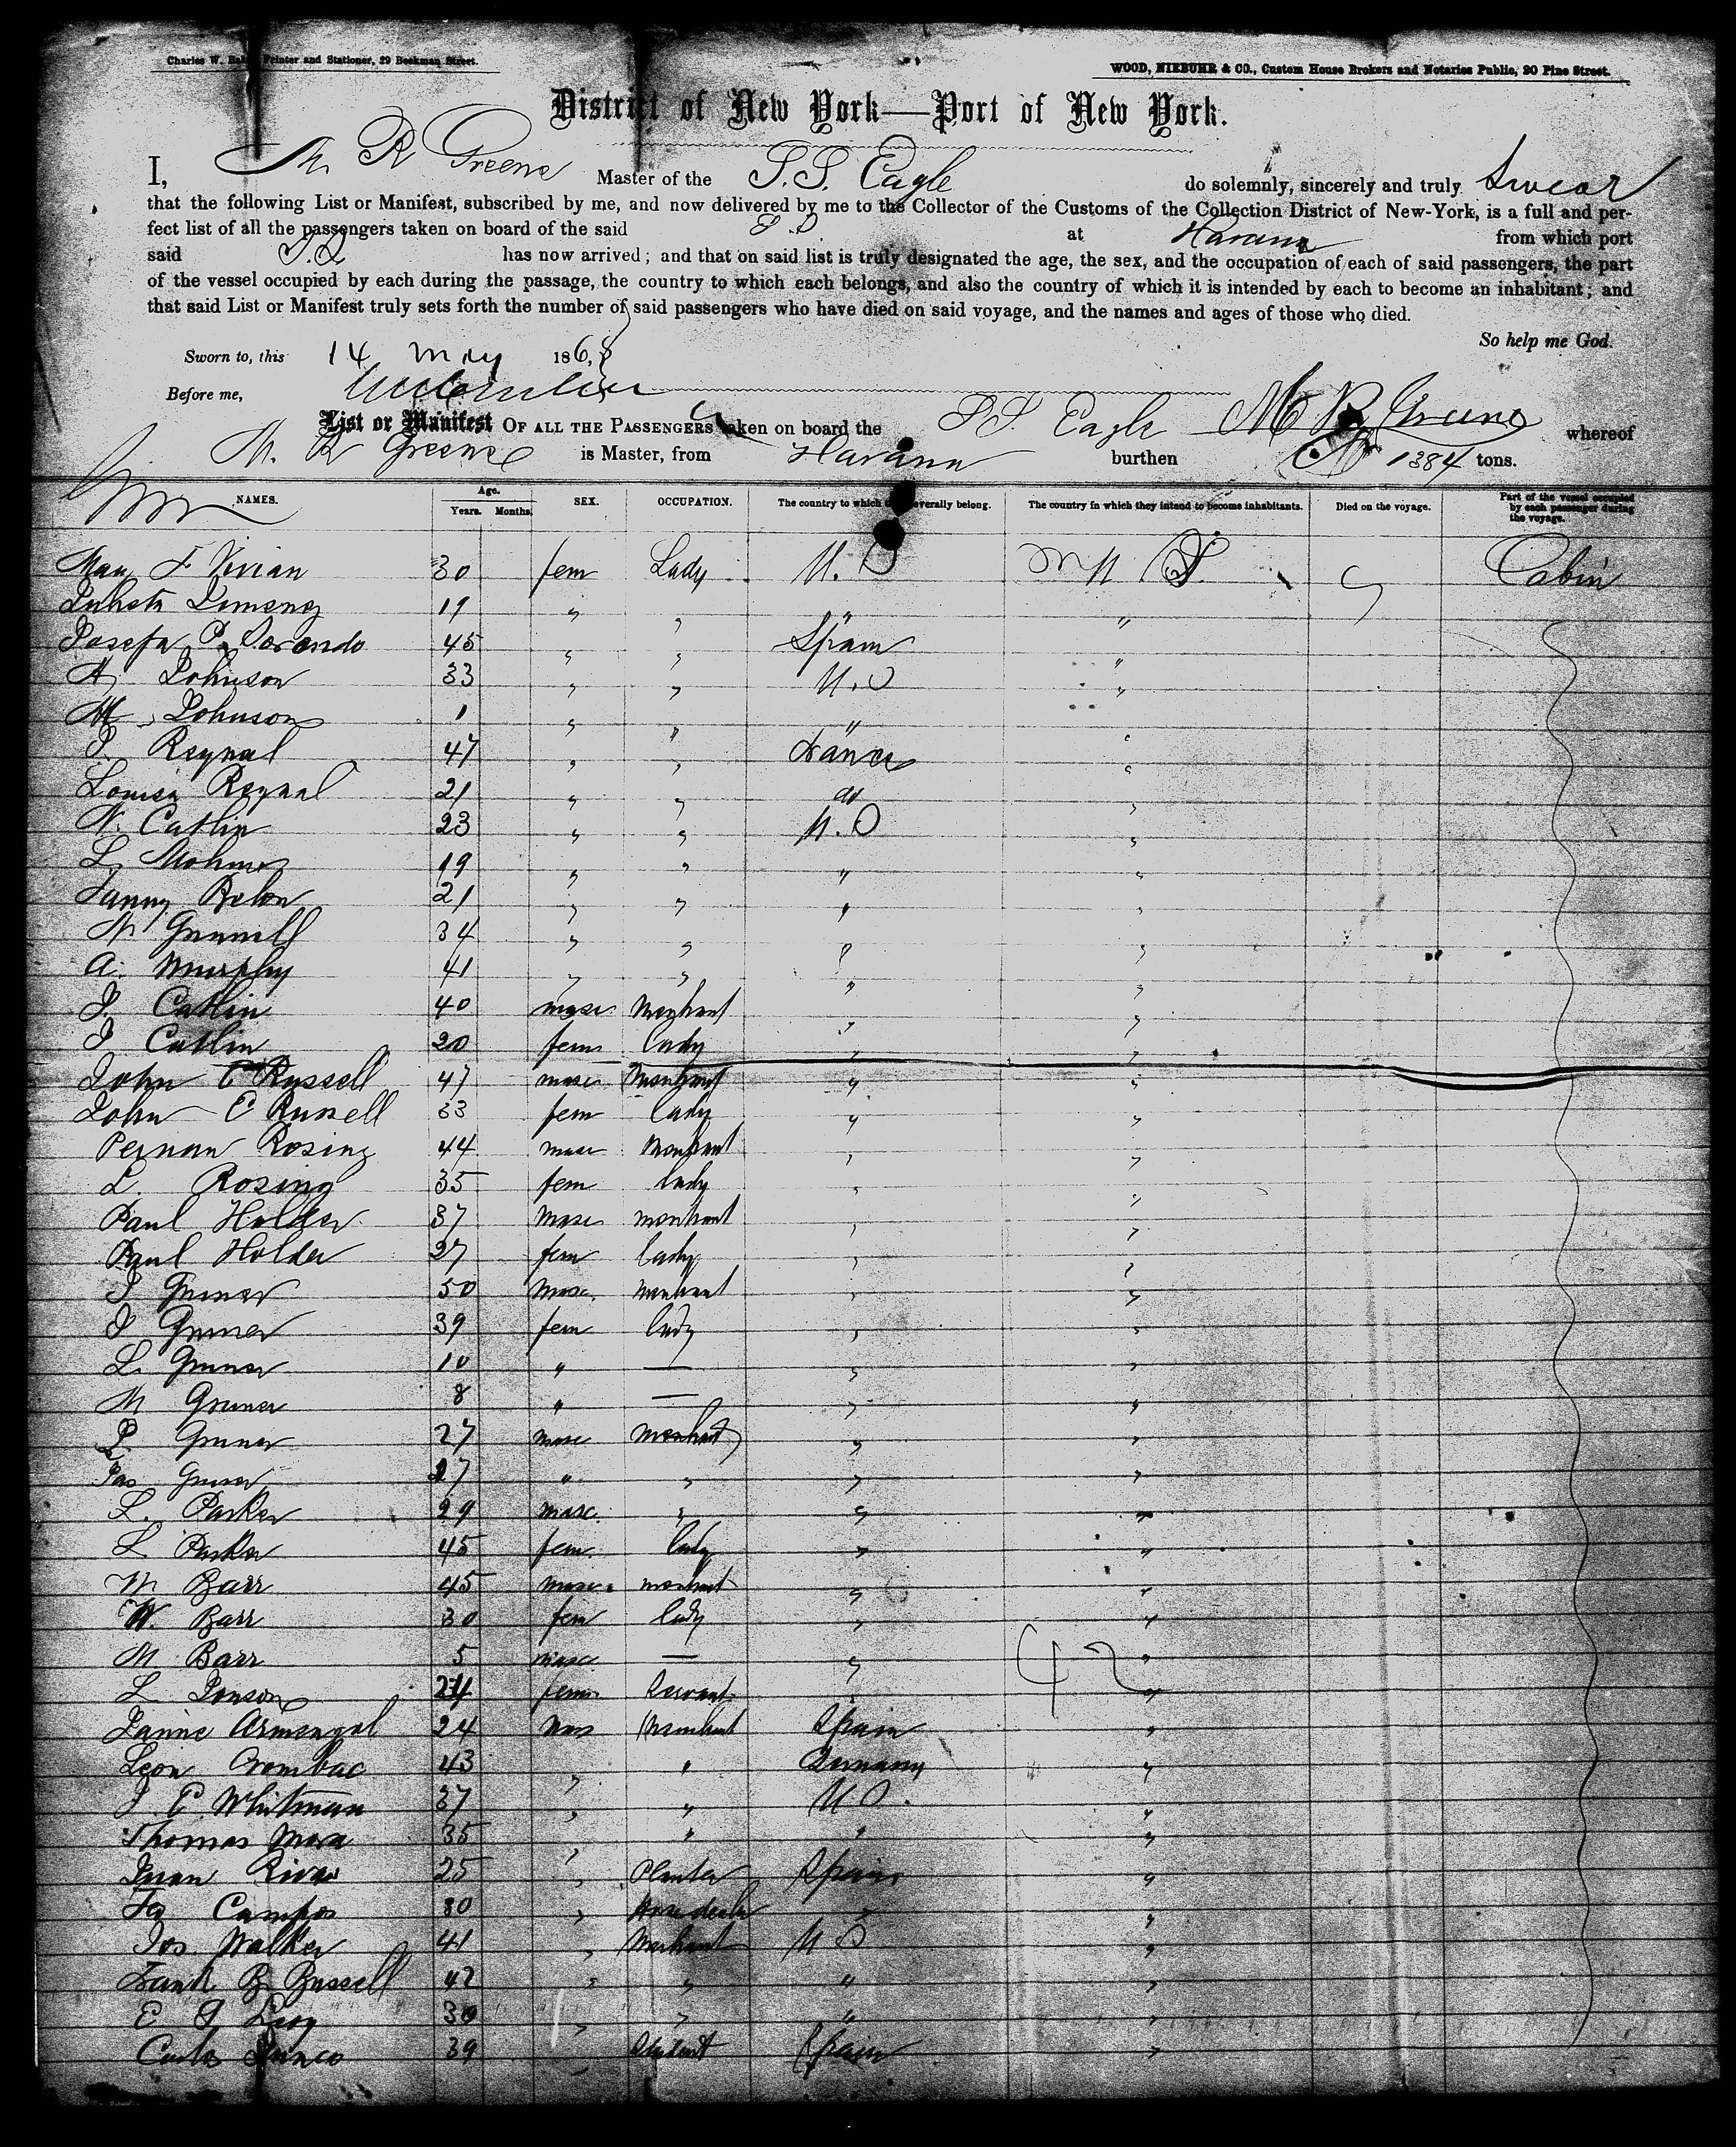 Charles W. Baker, Printer and Stationer, 29 Beekman Street.
WOOD, NIEBUHR & CO., Custom House Brokers and Notaries Public, 90 Pine Street.
District of New York—Port of New York.
I, M. R Greene Master of the S.S. Eagle do solemnly, sincerely and truly swear
that the following List or Manifest, subscribed by me, and now delivered by me to the Collector of the Customs of the Collection District of New-York, is a full and per-
fect list of all the passengers taken on board of the said S S at Havana from which port
said S.S. has now arrived; and that on said list is truly designated the age, the sex, and the occupation of each of said passengers, the part
of the vessel occupied by each during the passage, the country to which each belongs, and also the country of which it is intended by each to become an inhabitant; and
that said List or Manifest truly sets forth the number of said passengers who have died on said voyage, and the names and ages of those who died.
So help me God.
Sworn to, this 14 May 1868
Before me,
M R Greene
List or Manifest OF ALL THE PASSENGERS taken on board the S.S. Eagle whereof
M. R Greene is Master, from Havana burthen 1384 tons.
NAMES. Age. Years. Months. SEX. OCCUPATION. The country to which they severally belong. The country in which they intend to become inhabitants. Died on the voyage. Part of the vessel occupied by each passenger during the voyage.
30 fem Lady U.S U S Cabin
19 " " " "
Josefa P. 45 " " Spain "
A. Johnson 33 " " U.S "
M. Johnson 1 " " " "
J. Reynal 47 " " France "
Louisa Reynal 21 " " do "
N. Catlin 23 " " U.S "
L. 19 " " " "
Fanny 21 " " " "
34 " " " "
A. Murphy 41 " " " "
J. Catlin 40 masc Merchant " "
J Catlin 20 fem lady " "
John C Russell 47 masc Merchant " "
John C Russell 33 fem lady " "
Rosing 44 masc Merchant " "
L. Rosing 35 fem lady " "
Paul Holder 37 masc merchant " "
Paul Holder 27 fem lady " "
J Gruner 50 masc. merchant " "
J Gruner 39 fem lady " "
L. Gruner 10 " — " "
M Gruner 8 " — " "
P. Gruner 27 masc merchant " "
Jas Gruner 27 " " " "
L. Parker 29 masc. " " "
L Parker 45 fem. lady " "
M Barr 45 masc. merchant " "
W. Barr 30 fem lady " "
M Barr 5 masc — " "
L 24 fem Servant " "
42
Armengol 24 mas Merchant Spain "
Leon Crombac 43 " " Germany "
J. E. Whitman 37 " " U S. "
Thomas Mora 35 " " " "
Juan Rivas 25 " Planter Spain "
Campos 30 " " "
Jos. Walker 41 " Merchant U S "
Frank B Bussell 42 " " " "
E 30 " " " "
Carlos 39 " Student Spain "